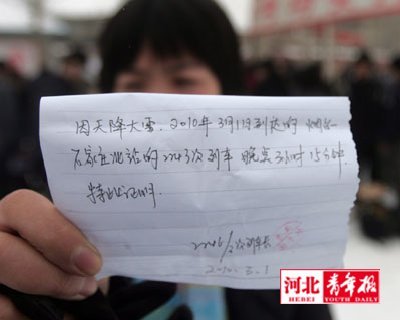 因天降大雪,2010年3月1日到达的烟台—
石家庄北站的2443次列车晚点3小时15分钟
特此证明.
次列车长
2010.3.1
河北青年报
HEBEI YOUTH DAILY